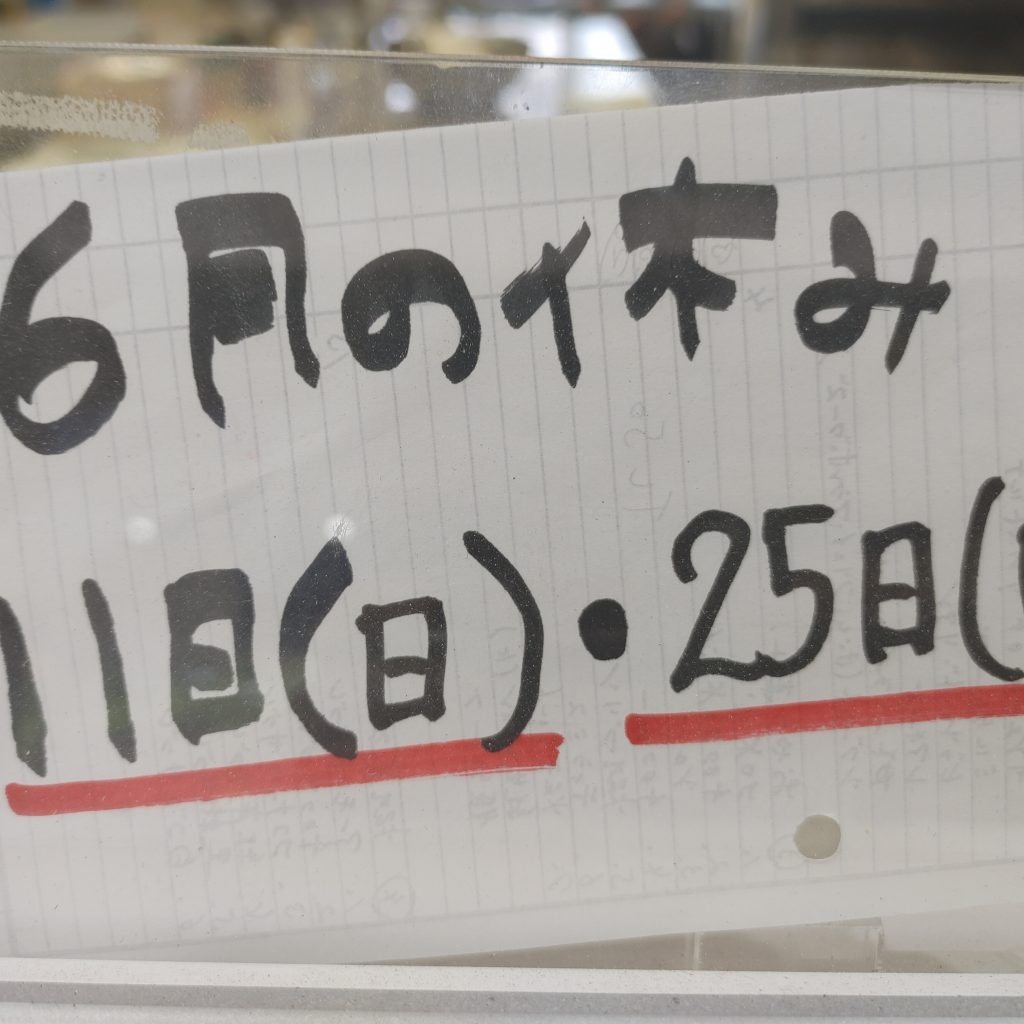 6月の休み
11日(日)・25日(